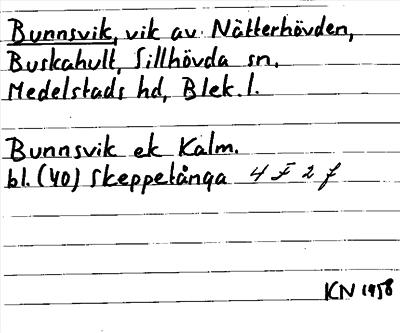 Bunnsvik, vik av Nätterhövden,
Buskahult, Sillhövda sn,
Medelstads hd, Blek. l.
Bunnsvik ek Kalm.
bl. (40) Skeppetånga 4 F 2 f
KN 1958